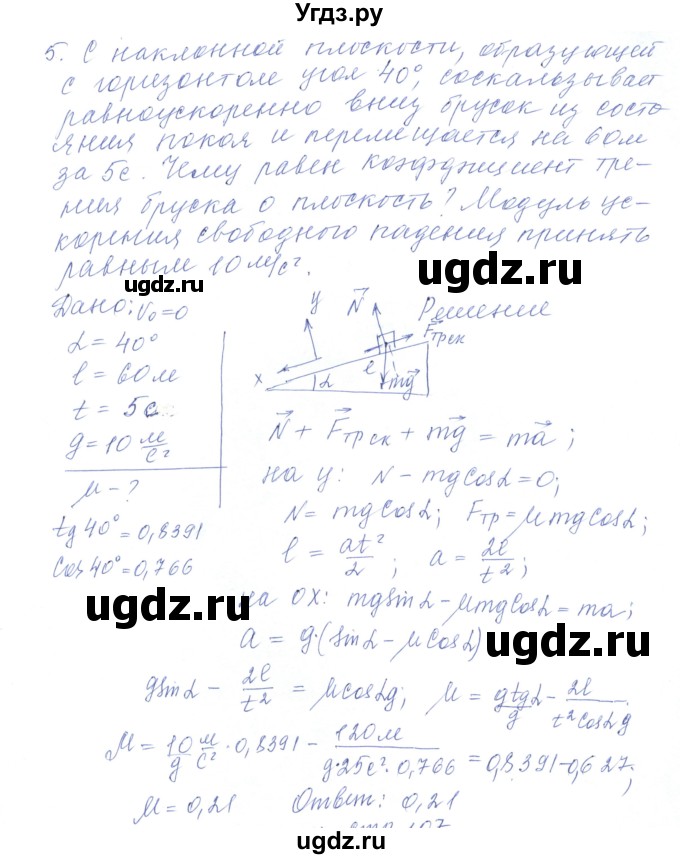 Угдз.ру
5. С наклонной плоскости, образующей
с горизонтом угол 40°, соскальзывает
равноускоренно вниз брусок из состо
яния покоя и перемещается на 60м
за 5с. Чему равен коэффициент тре-
ния бруска о плоскость? Модуль ус-
корения свободного падения принять
равным 10 м/с².
ugdz.ru
Дано: v₀=0
Решение
y N⃗ F⃗тр ск
x α l mg⃗
α = 40°
l = 60м
t = 5с
g = 10 м/с²
μ - ?
tg 40° = 0,8391
cos 40° = 0,766
ugdz.ru
N⃗ + F⃗тр ск + mg⃗ = ma⃗ ;
на y: N - mgcosα = 0;
N = mgcosα; Fтр = μmgcosα;
l = at²/2 ; a = 2l/t² ;
на OX: mgsinα - μmgcosα = ma;
a = g·(sinα - μcosα)
ugdz.ru
gsinα - 2l/t² = μcosαg; μ = gtgα/g - 2l/t²cosαg
μ = 10/g м/с² · 0,8391 - 120м/g·25с²·0,766 = 0,8391-0,627;
μ = 0,21 Ответ: 0,21
ugdz.ru